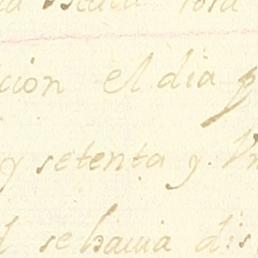 ción el dia
y setenta y Vn
se hauia dis